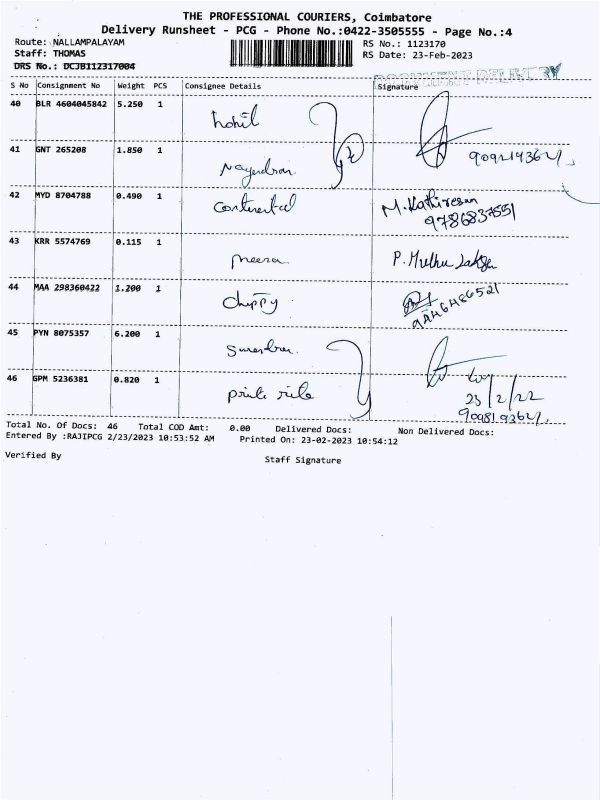 THE PROFESSIONAL COURIERS, Coimbatore
Delivery Runsheet - PCG - Phone No.:0422-3505555 - Page No.:4
Route: NALLAMPALAYAM
RS No.: 1123170
Staff: THOMAS
RS Date: 23-Feb-2023
DRS No.: DCJB112317004
DOCUMENT DELIVERY
S No Consignment No Weight PCS Consignee Details Signature
40 BLR 4604045842 5.250 1
41 GNT 265208 1.850 1
42 MYD 8704788 0.490 1 continental M. Kathiresan
9786837551
43 KRR 5574769 0.115 1 meena P. Muthu
44 MAA 298360422 1.200 1 chippy
45 PYN 8075357 6.200 1
46 GPM 5236381 0.820 1
23/2/22
Total No. Of Docs: 46 Total COD Amt: 0.00 Delivered Docs: Non Delivered Docs:
Entered By :RAJIPCG 2/23/2023 10:53:52 AM Printed On: 23-02-2023 10:54:12
Verified By Staff Signature